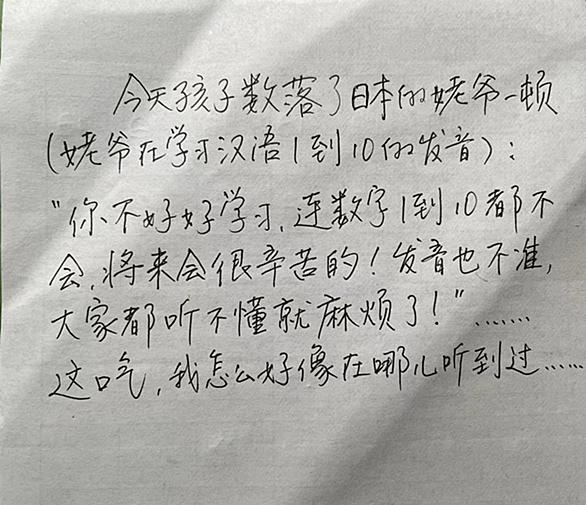 今天孩子数落了日本的姥爷一顿
(姥爷在学习汉语1到10的发音):
"你不好好学习,连数字1到10都不
会,将来会很辛苦的!发音也不准,
大家都听不懂就麻烦了!"……
这口气,我怎么好像在哪儿听到过……